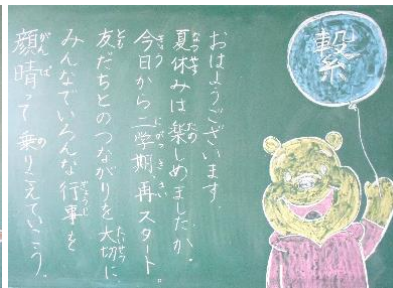 おはようございます。
夏休みは楽しめましたか。
今日から二学期再スタート。
友だちとのつながりを大切に
みんなでいろんな行事を
顔晴って乗りこえていこう。
繋